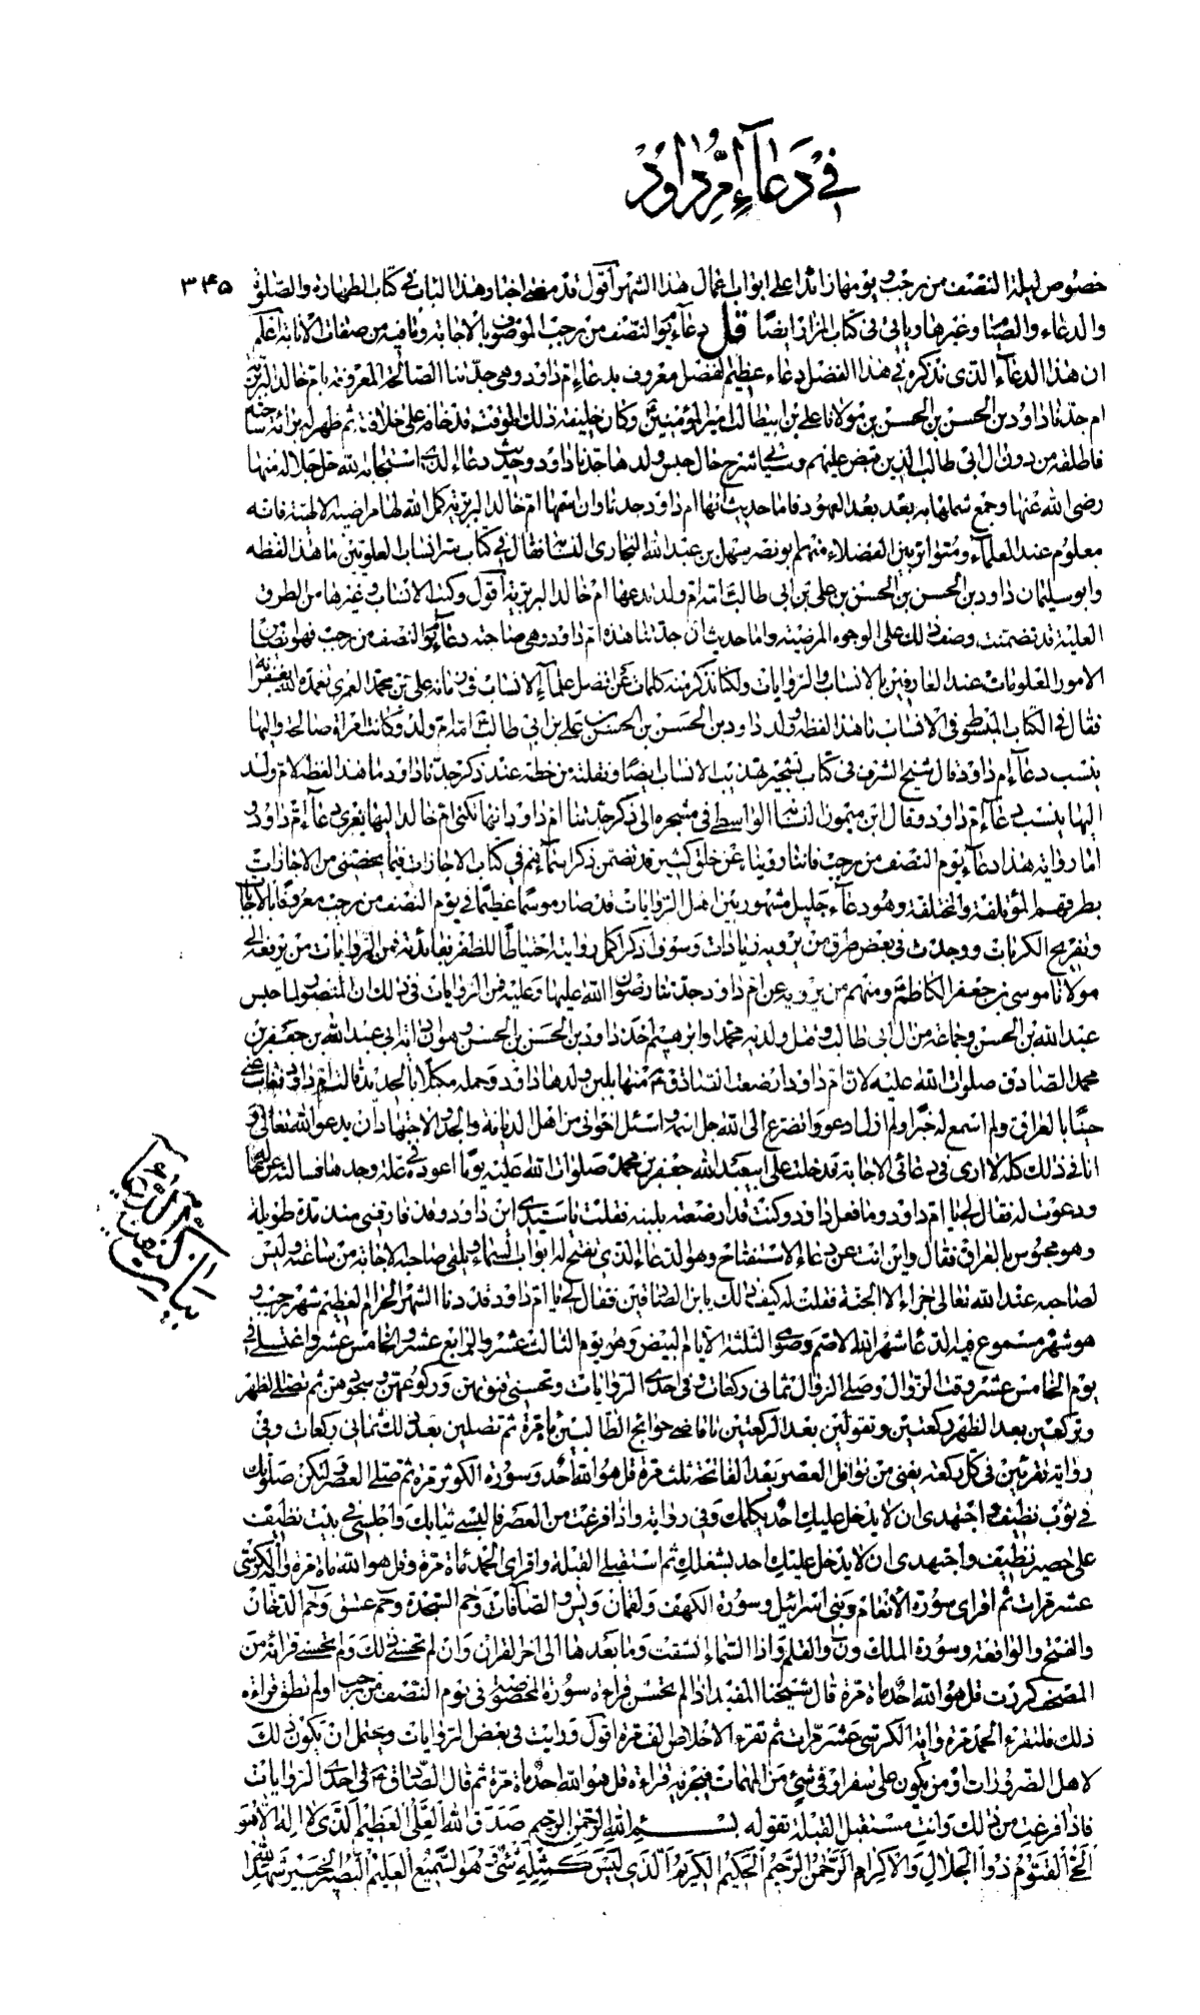 في دعاء ام داود
٣٤٥
خصوص ليلة النصف من رجب ويومها زائدا على ابواب اعمال هذا الشهر اقول قد مضى اخبار هذا الباب في كتاب الطهارة والصلوة
والدعاء والصيام وغيرها ويأتي في كتاب المزار ايضا قل دعاء يوم النصف من رجب الموصوف بالاجابة وما فيه من صفات الانابة اعلم
ان هذا الدعاء الذي نذكره في هذا الفصل دعاء عظيم الفضل معروف بدعاء ام داود وهي جدتنا الصالحة المعروفة بام خالد البربرية
ام جدنا داود بن الحسن بن الحسن بن مولانا علي بن ابيطالب امير المؤمنين وكان خليفة ذلك الوقت قد خافه على خلافته ثم ظهر له براءة ساحته
فاطلقه من دون ال ابي طالب الذين قبض عليهم وسيأتي شرح حال حبس ولدها جدنا داود وحديث دعاء الذي استجابه الله جل جلاله منها
رضي الله عنها وجمع شملها به بعد بعد العهود فاما حديث انها ام داود جدنا وان اسمها ام خالد البربرية كمل الله لها مراضيه الالهية فانه
معلوم عند العلماء ومتواتر بين الفضلاء منهم ابو نصر سهل بن عبد الله البخاري النسابة فقال في كتاب سر انساب العلويين ما هذا لفظه
وابو سليمان داود بن الحسن بن الحسن بن علي بن ابي طالب امه ام ولد تدعى ام خالد البربرية اقول وكتب الانساب وغيرها من الطرق
العلية قد تضمنت وصف ذلك على الوجوه المرضية واما حديث ان جدتنا هذه ام داود وهي صاحبة دعاء يوم النصف من رجب فهو ايضا من
الامور المعلومات عند العارفين بالانساب والروايات ولكنا نذكر منه كلمات عن افضل علماء الانساب في زمانه علي بن محمد العمري تغمده الله بغفرانه
فقال في الكتاب المبسوط في الانساب ما هذا لفظه وولد داود بن الحسن بن الحسن بن علي بن ابي طالب امه ام ولد وكانت امراة صالحة واليها
ينسب دعاء ام داود قال شيخ الشرف في كتاب تشجير تهذيب الانساب ايضا ونقلته من خطه عند ذكر جدنا داود ما هذا لفظه لام ولد
اليها ينسب دعاء ام داود وقال ابن ميمون النسابة الواسطي في مشجره الى ذكر جدتنا ام داود انها تكنى ام خالد اليها يعزى دعاء ام داود و
اما رواية هذا دعاء يوم النصف من رجب فاننا رويناه عن خلق كثير قد تضمن ذكر اسمائهم في كتاب الاجازات فيما يخصني من الاجازات
بطرقهم المؤتلفة والمختلفة وهو دعاء جليل مشهور بين اهل الروايات قد صار موسما عظيما في يوم النصف من رجب معروفا بالاجابات
وتفريج الكربات ووجدت في بعض طرق من يرويه زيادات وسوف اذكر اكمل رواياته احتياطا للظفر بفائدته فمن الروايات من يرفعه الى
مولانا موسى بن جعفر الكاظم ومنهم من يرويه عن ام داود جدتنا رضوان الله عليها وعليه فمن الروايات في ذلك ان المنصور لما حبس
عبد الله بن الحسن وجماعة من ال ابي طالب وقتل ولديه محمدا وابرهيم اخذ داود بن الحسن بن الحسن وهو ابن داية ابي عبد الله بن جعفر بن
محمد الصادق صلوات الله عليه لان ام داود ارضعت الصادق منها بلبن ولدها داود وحمله مكبلا بالحديد قالت ام داود فغاب عني
حينا بالعراق ولم اسمع له خبرا ولم ازل ادعو واتضرع الى الله جل اسمه واسئل اخواني من اهل الديانة والجد والاجتهاد ان يدعوا الله تعالى و
انا في ذلك كله لا ارى في دعائي الاجابة فدخلت على ابي عبد الله جعفر بن محمد صلوات الله عليه يوما اعوده في علة وجدها فسالته عن حاله
ودعوت له فقال لي يا ام داود وما فعل داود وكنت قد ارضعته بلبنه فقلت يا سيدي واين داود وقد فارقني منذ مدة طويلة
وهو محبوس بالعراق فقال واين انت عن دعاء الاستفتاح وهو الدعاء الذي تفتح له ابواب السماء ويلقى صاحبه الاجابة من ساعته وليس
لصاحبه عند الله تعالى جزاء الا الجنة فقلت له كيف ذلك يابن الصادقين فقال لي يا ام داود قد دنا الشهر الحرام العظيم شهر رجب و
هو شهر مسموع فيه الدعا شهر الله الاصم وصومي الثلثة الايام البيض وهو يوم الثالث عشر والرابع عشر والخامس عشر واغتسلي في
يوم الخامس عشر وقت الزوال وصلي الزوال ثماني ركعات وفي احدى الروايات وتحسني قنوتهن وركوعهن وسجودهن ثم تصلي الظهر
وتركعين بعد الظهر ركعتين وتقولين بعد الركعتين يا قاضي حوائج الطالبين مأة مرة ثم تصلين بعد ذلك ثماني ركعات وفي
رواية تقرئين في كل ركعة يعني من نوافل العصر بعد الفاتحة ثلث مرة قل هو الله احد وسورة الكوثر مرة ثم صلي العصر ولتكن صلوتك
في ثوب نظيف واجتهدي ان لا يدخل عليك احد يكلمك وفي رواية واذا فرغت من العصر فالبسي ثيابك واجلسي في بيت نظيف
على حصير نظيف واجتهدي ان لا يدخل عليك احد يشغلك ثم استقبلي القبلة واقرئي الحمد مأة مرة وقل هو الله مأة مرة واية الكرسي
عشر مرات ثم اقرئي سورة الانعام وبني اسرائيل وسورة الكهف ولقمان ويس والصافات وحم السجدة وحم عسق وحم الدخان
والفتح والواقعة وسورة الملك ون والقلم واذا السماء انشقت وما بعدها الى اخر القران وان لم تحسني ذلك ولم تحسني قرائته من
المصحف كررت قل هو الله احد مأة مرة قال شيخنا المفيد اذا لم يحسن قراءة سورة المخصوصة في يوم النصف من رجب او لم يطق قراءة
ذلك فليقرء الحمد مرة واية الكرسي عشر مرات ثم تقرء الاخلاص الف مرة اقول ورايت في بعض الروايات ويحتمل ان يكون ذلك
لاهل الضرورات او من يكون على سفر او في شئ من المهمات فيجزيه قراءة قل هو الله احد مأة مرة ثم قال الصادق في احدى الروايات
فاذا فرغت من ذلك وانت مستقبل القبلة تقوله بسم الله الرحمن الرحيم صدق الله العلي العظيم الذي لا اله الا هو
الحي القيوم ذو الجلال والاكرام الرحمن الرحيم الحكيم الكريم الذي ليس كمثله شئ وهو السميع العليم البصير الخبير شهد الله